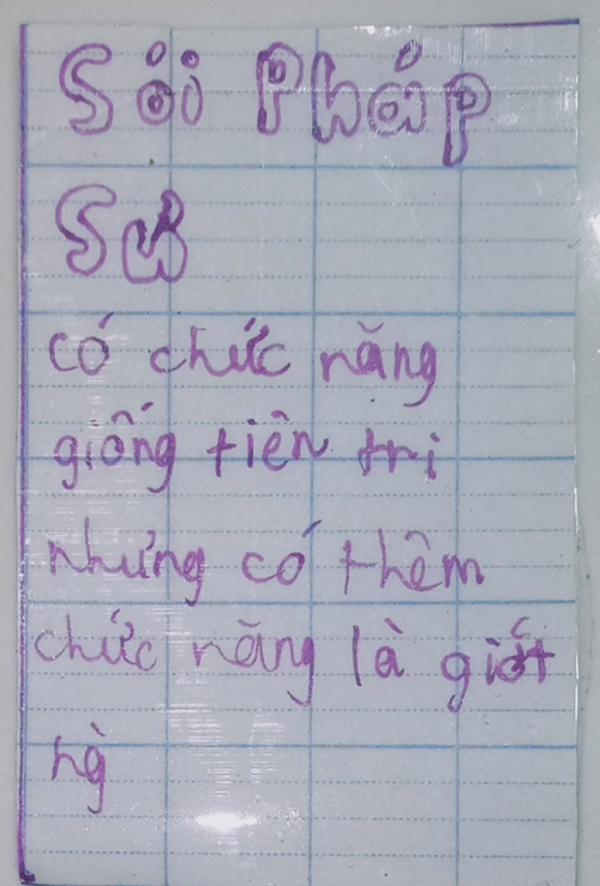 Sói Pháp
Sư
có chức năng
giống tiên tri
nhưng có thêm
chức năng là giết
ng